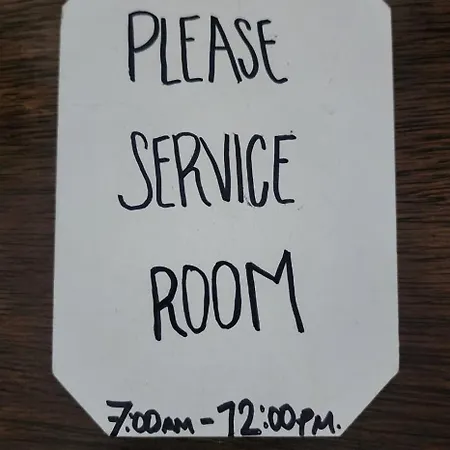 PLEASE
SERVICE
ROOM
7:00AM - 12:00PM.